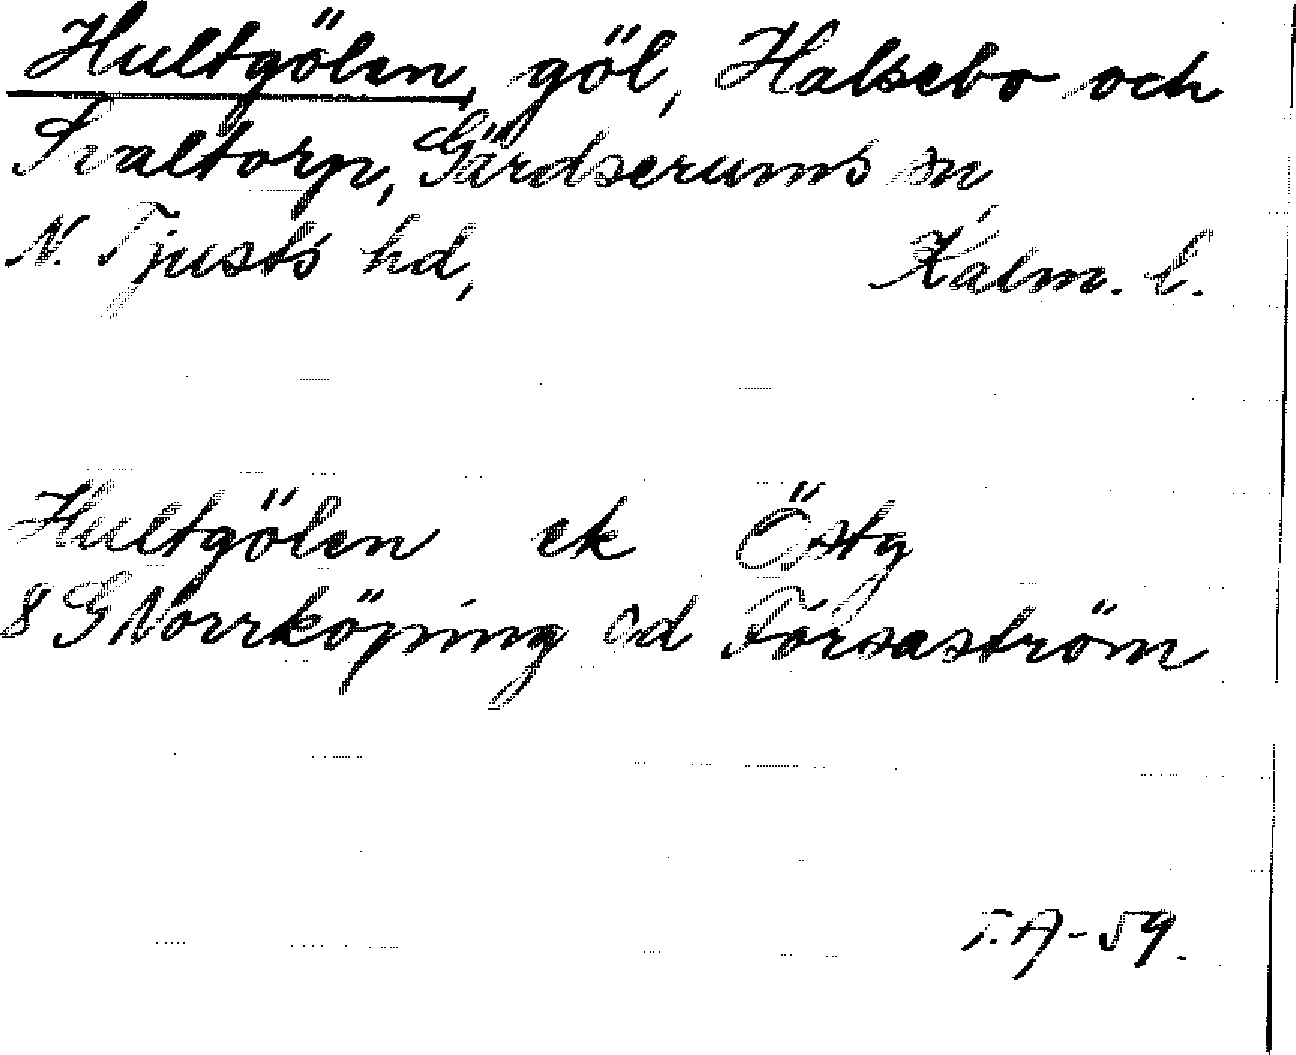 Hultgölen, göl, Halsebo och
Svaltorp, Gärdserums sn
N. Tjusts hd, Kalm. l.
Hultgölen ek Östg
8 G Norrköping Od Forsaström
T.A-59.